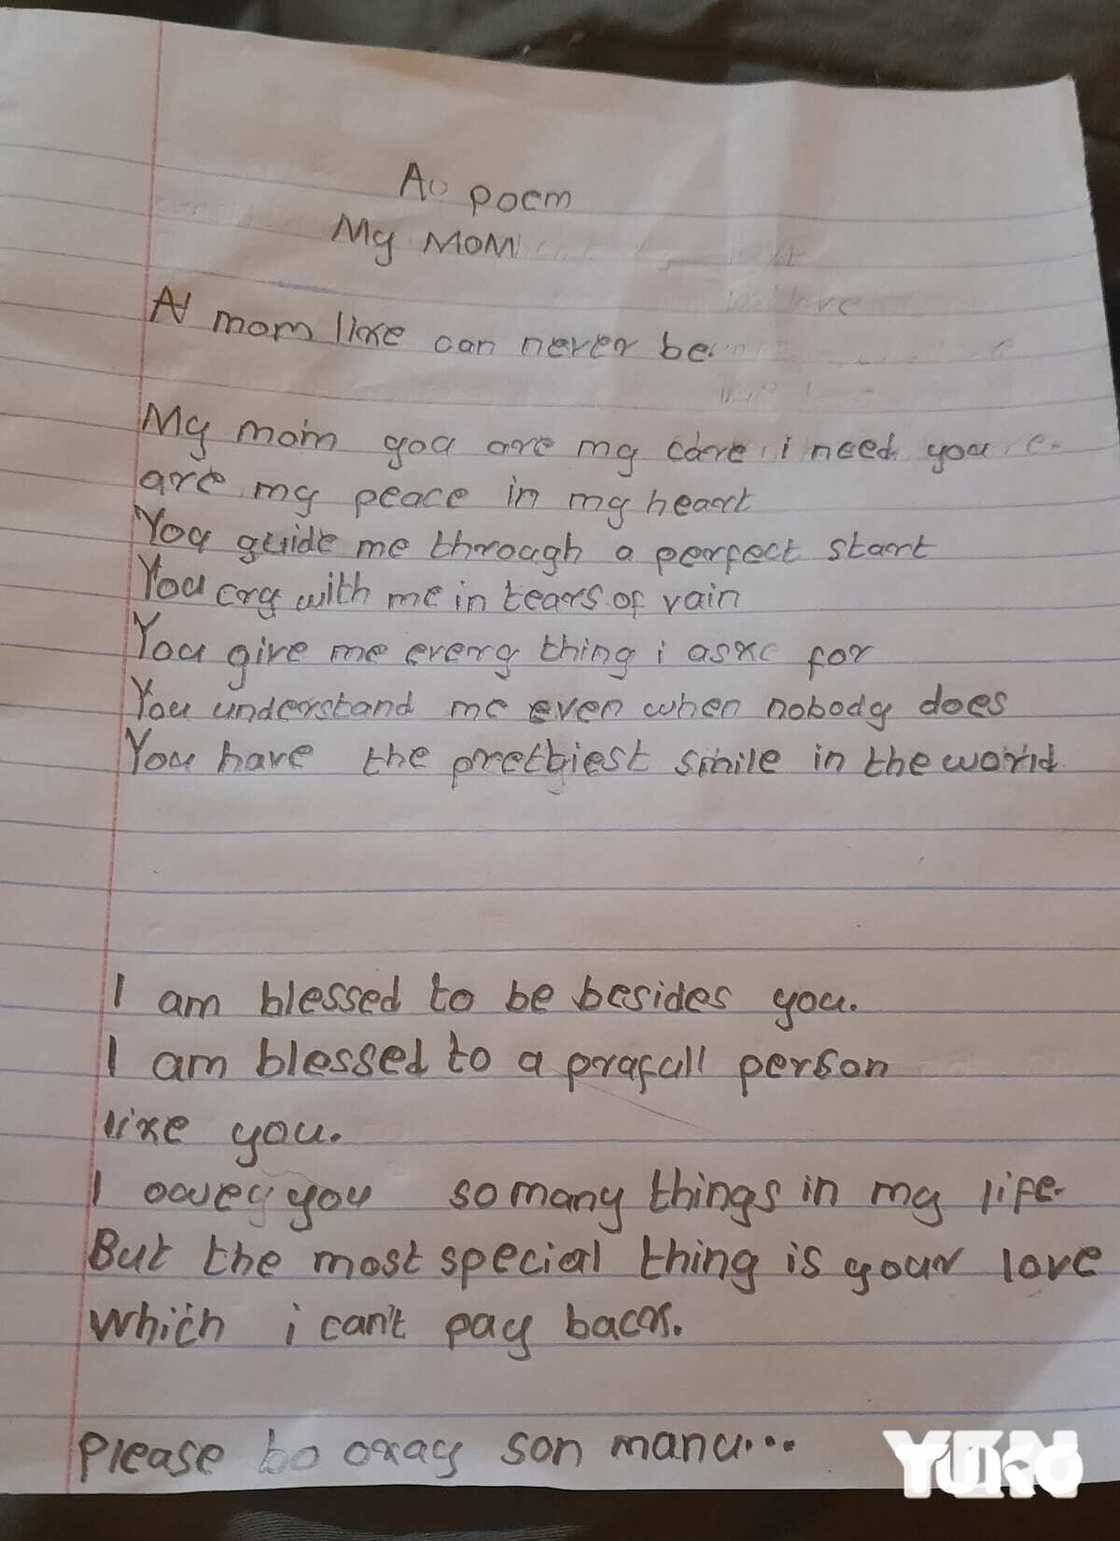 A poem
My MOM
A mom like can never be
My mom you are my care i need you
are my peace in my heart
You guide me through a perfect start
You cry with me in tears of vain
You give me every thing i ask for
You understand me even when nobody does
You have the prettiest smile in the world
I am blessed to be besides you.
I am blessed to a prafull person
like you.
I owe you so many things in my life
But the most special thing is your love
which i can't pay back.
please be okay son manu...